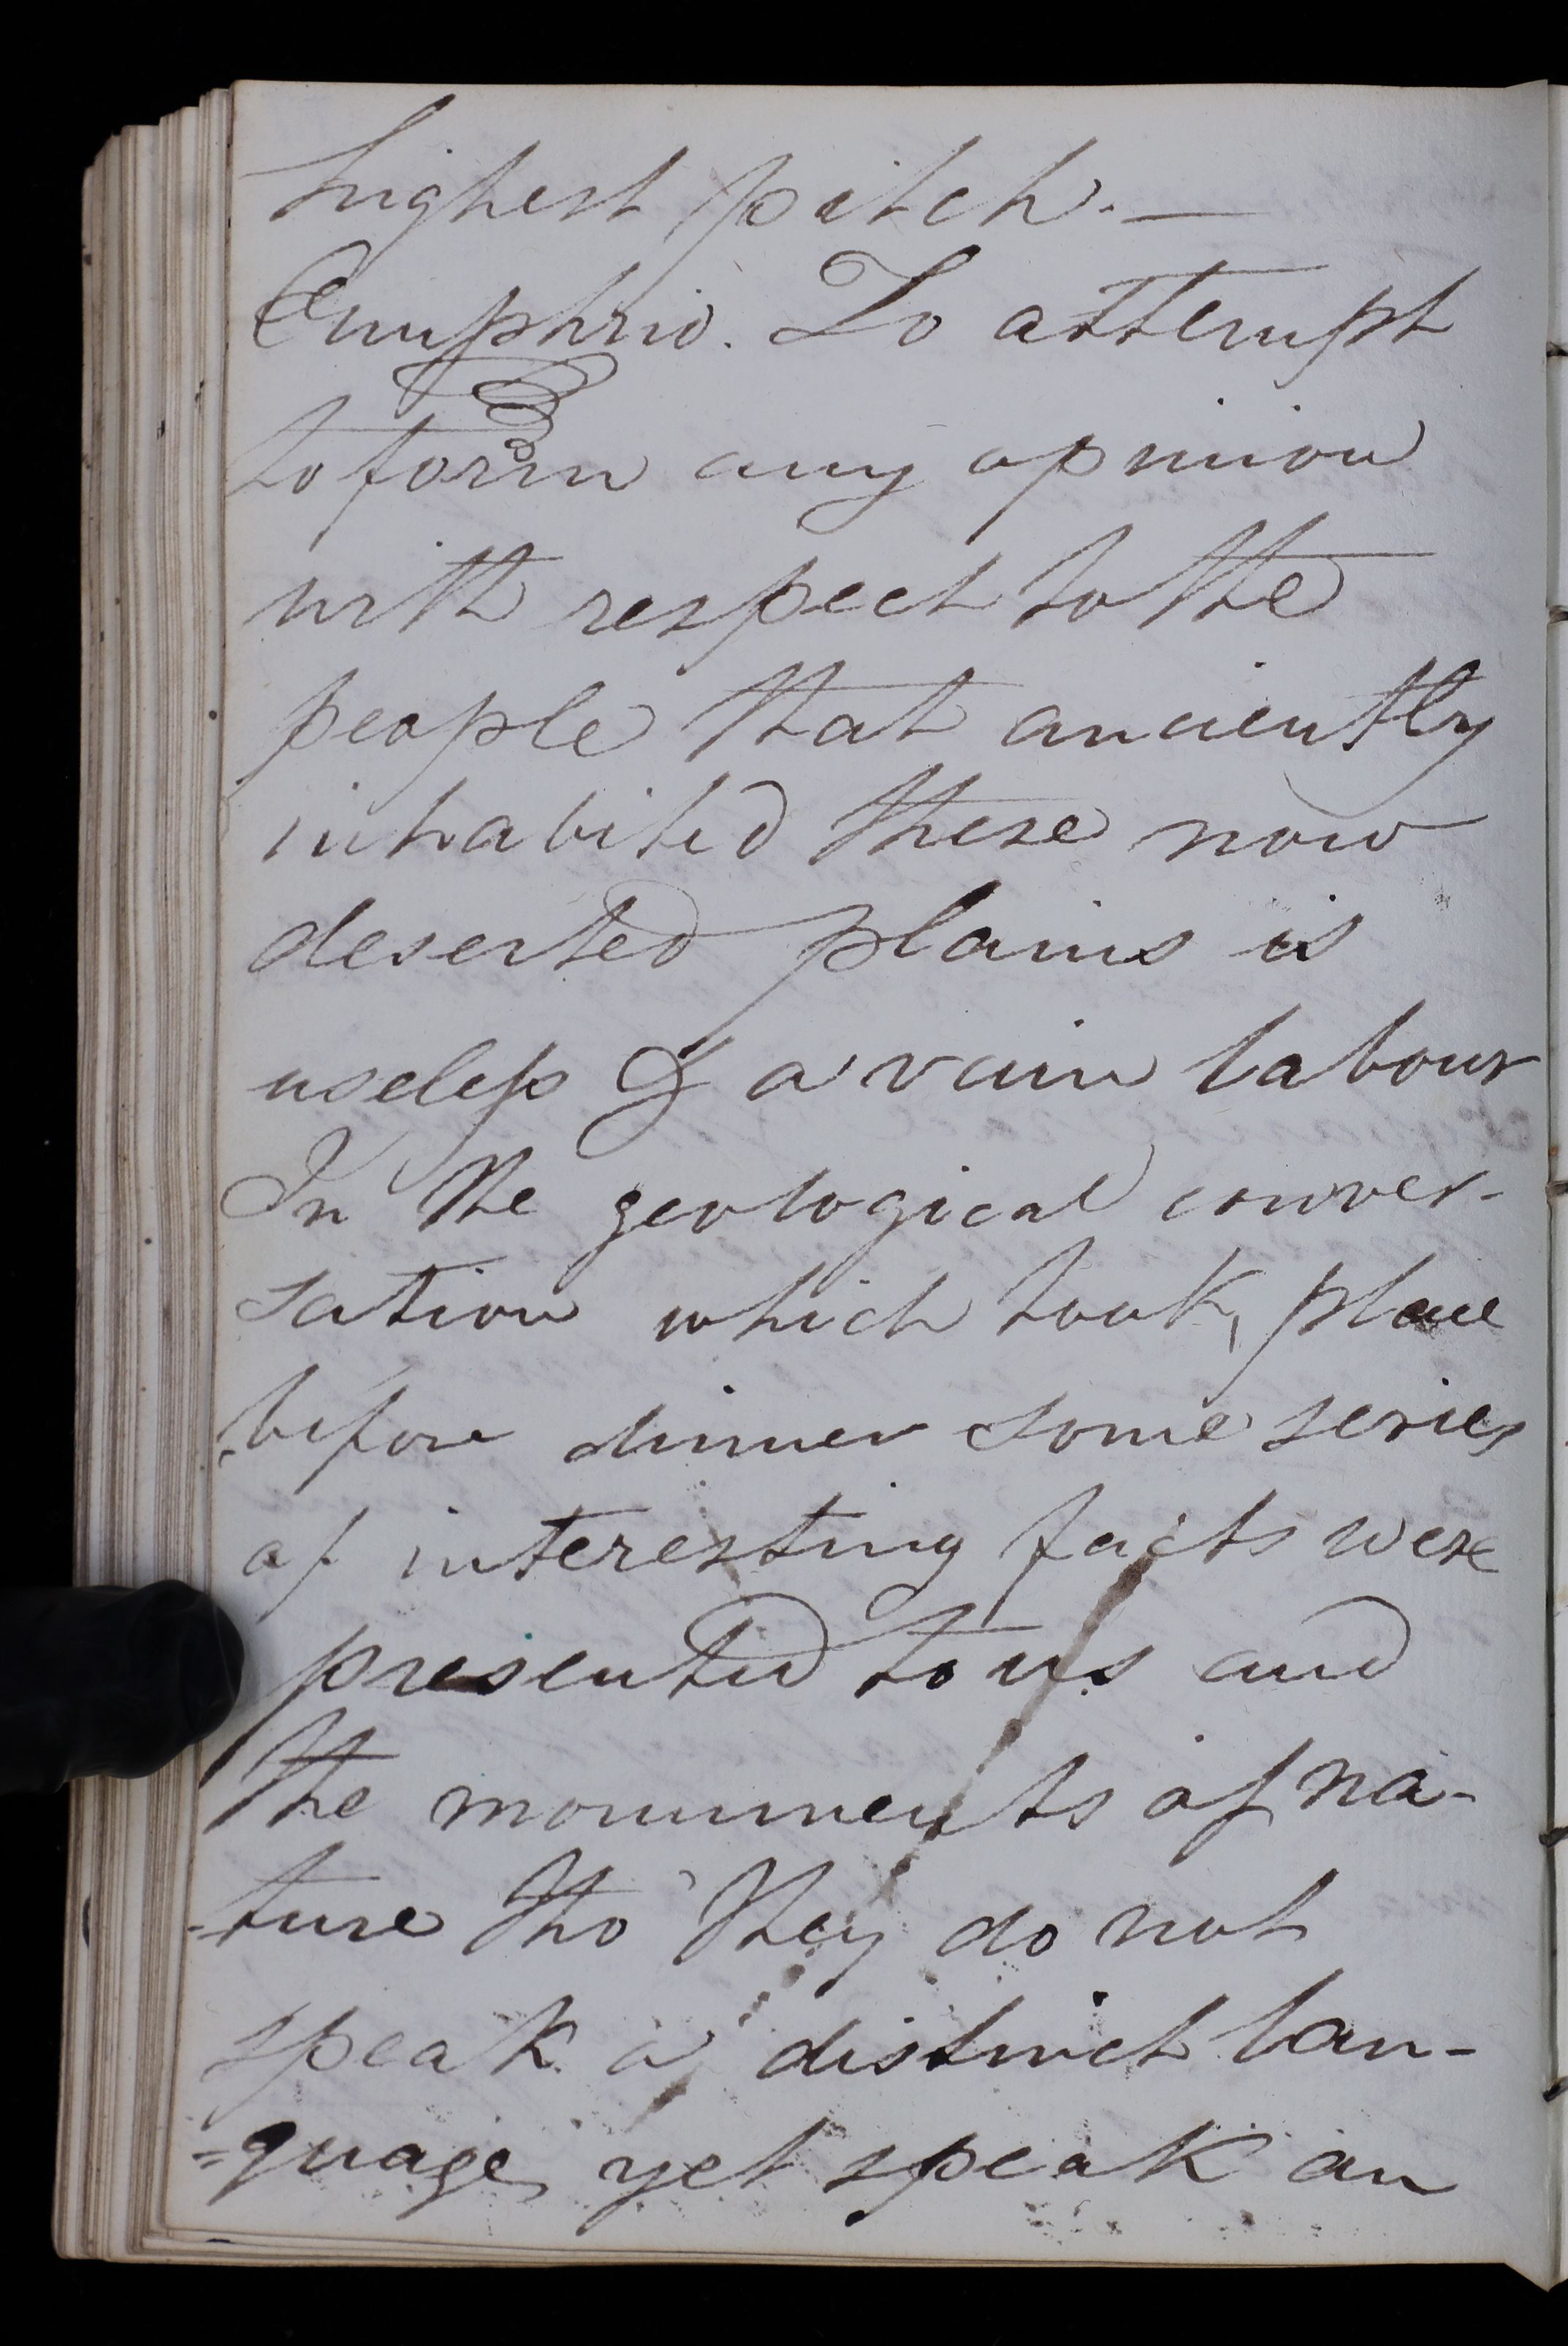 highest pitch. —
Emuphrio. To attempt
to form any opinion
with respect to the
people that anciently
inhabited these now
deserted plains is
useless & a vain labour
In the geological conver-
sation which took place
before dinner some series
of interesting facts were
presented to us and
the monuments of na-
-ture tho' they do not
speak a distinct lan-
=guage, yet speak an